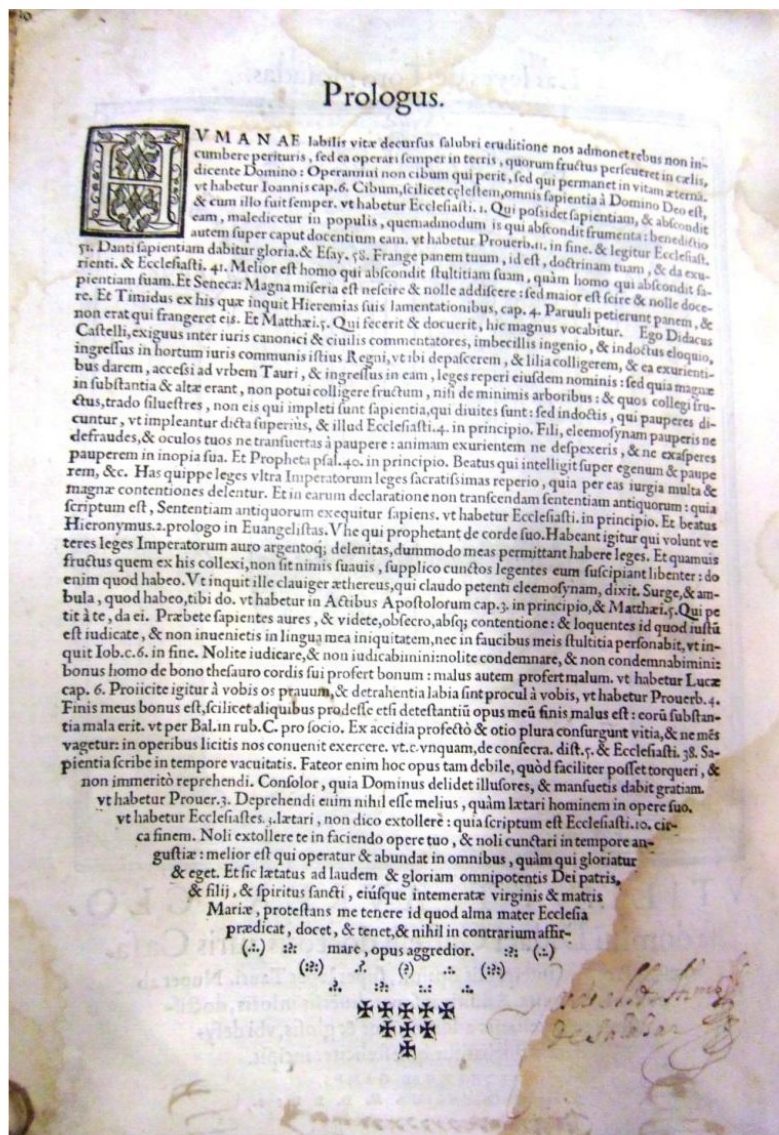 Prologus.
HVMANAE labilis vitæ decursus salubri eruditione nos admonet rebus non in-
cumbere perituris, sed ea operari semper in terris, quorum fructus perseueret in cælis,
dicente Domino: Operamini non cibum qui perit, sed qui permanet in vitam æternã.
vt habetur Ioannis cap.6. Cibum, scilicet cęlestem, omnis sapientia à Domino Deo est,
& cum illo fuit semper. vt habetur Ecclesiasti. 1. Qui possidet sapientiam, & abscondit
eam, maledicetur in populis, quemadmodum is qui abscondit frumenta: benedictio
autem super caput docentium eam. vt habetur Prouerb.11. in fine. & legitur Ecclesiast.
51. Danti sapientiam dabitur gloria. & Esay. 58. Frange panem tuum, id est, doctrinam tuam, & da exu-
rienti. & Ecclesiasti. 41. Melior est homo qui abscondit stultitiam suam, quàm homo qui abscondit sa-
pientiam suam. Et Seneca: Magna miseria est nescire & nolle addiscere: sed maior est scire & nolle doce-
re. Et Timidus ex his quæ inquit Hieremias suis lamentationibus, cap. 4. Paruuli petierunt panem, &
non erat qui frangeret eis. Et Matthæi.5. Qui fecerit & docuerit, hic magnus vocabitur. Ego Didacus
Castelli, exiguus inter iuris canonici & ciuilis commentatores, imbecillis ingenio, & indoctus eloquio,
ingressus in hortum iuris communis istius Regni, vt ibi depascerem, & lilia colligerem, & ea exurienti-
bus darem, accessi ad vrbem Tauri, & ingressus in eam, leges reperi eiusdem nominis: sed quia magnæ
in substantia & altæ erant, non potui colligere fructum, nisi de minimis arboribus: & quos collegi fru-
ctus, trado siluestres, non eis qui impleti sunt sapientia, qui diuites sunt: sed indoctis, qui pauperes di-
cuntur, vt impleantur dicta superiùs, & illud Ecclesiasti.4. in principio. Fili, eleemosynam pauperis ne
defraudes, & oculos tuos ne transuertas à paupere: animam exurientem ne despexeris, & ne exasperes
pauperem in inopia sua. Et Propheta psal.40. in principio. Beatus qui intelligit super egenum & paupe
rem, &c. Has quippe leges vltra Imperatorum leges sacratissimas reperio, quia per eas iurgia multa &
magnæ contentiones delentur. Et in earum declaratione non transcendam sententiam antiquorum: quia
scriptum est, Sententiam antiquorum exequitur sapiens. vt habetur Ecclesiasti. in principio. Et beatus
Hieronymus.2.prologo in Euangelistas. Vhe qui prophetant de corde suo. Habeant igitur qui volunt ve
teres leges Imperatorum auro argentoq; delenitas, dummodo meas permittant habere leges. Et quamuis
fructus quem ex his collexi, non sit nimis suauis, supplico cunctos legentes eum suscipiant libenter: do
enim quod habeo. Vt inquit ille clauiger æthereus, qui claudo petenti eleemosynam, dixit. Surge, & am-
bula, quod habeo, tibi do. vt habetur in Actibus Apostolorum cap.3. in principio, & Matthæi.5. Qui pe
tit à te, da ei. Præbete sapientes aures, & videte, obsecro, absq; contentione: & loquentes id quod iustũ
est iudicate, & non inuenietis in lingua mea iniquitatem, nec in faucibus meis stultitia personabit, vt in-
quit Iob.c.6. in fine. Nolite iudicare, & non iudicabimini: nolite condemnare, & non condemnabimini:
bonus homo de bono thesauro cordis sui profert bonum: malus autem profert malum. vt habetur Lucæ
cap. 6. Proiicite igitur à vobis os prauum, & detrahentia labia sint procul à vobis, vt habetur Prouerb. 4.
Finis meus bonus est, scilicet aliquibus prodesse etsi detestantiũ opus meũ finis malus est: eorũ substan-
tia mala erit. vt per Bal. in rub. C. pro socio. Ex accidia profectò & otio plura consurgunt vitia, & ne mẽs
vagetur: in operibus licitis nos conuenit exercere. vt.c.vnquam, de consecra. dist.5. & Ecclesiasti. 38. Sa-
pientia scribe in tempore vacuitatis. Fateor enim hoc opus tam debile, quòd faciliter posset torqueri, &
non immeritò reprehendi. Consolor, quia Dominus delidet illusores, & mansuetis dabit gratiam.
vt habetur Prouer.3. Deprehendi enim nihil esse melius, quàm lætari hominem in opere suo.
vt habetur Ecclesiastes.3. lætari, non dico extollerè: quia scriptum est Ecclesiasti.10. cir-
ca finem. Noli extollere te in faciendo opere tuo, & noli cunctari in tempore an-
gustiæ: melior est qui operatur & abundat in omnibus, quàm qui gloriatur
& eget. Et sic lætatus ad laudem & gloriam omnipotentis Dei patris,
& filij, & spiritus sancti, eiúsque intemeratæ virginis & matris
Mariæ, protestans me tenere id quod alma mater Ecclesia
prædicat, docet, & tenet, & nihil in contrarium affir-
mare, opus aggredior.